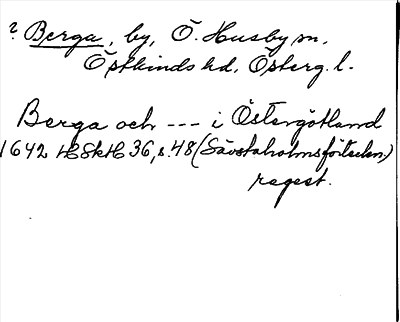 ? Berga, by, Ö. Husby sn,
Östkinds hd, Österg. l.
Berga och --- i Östergötland
1642 HSkH 36, s. 48 (Sävstaholmsförteckn.)
regest.